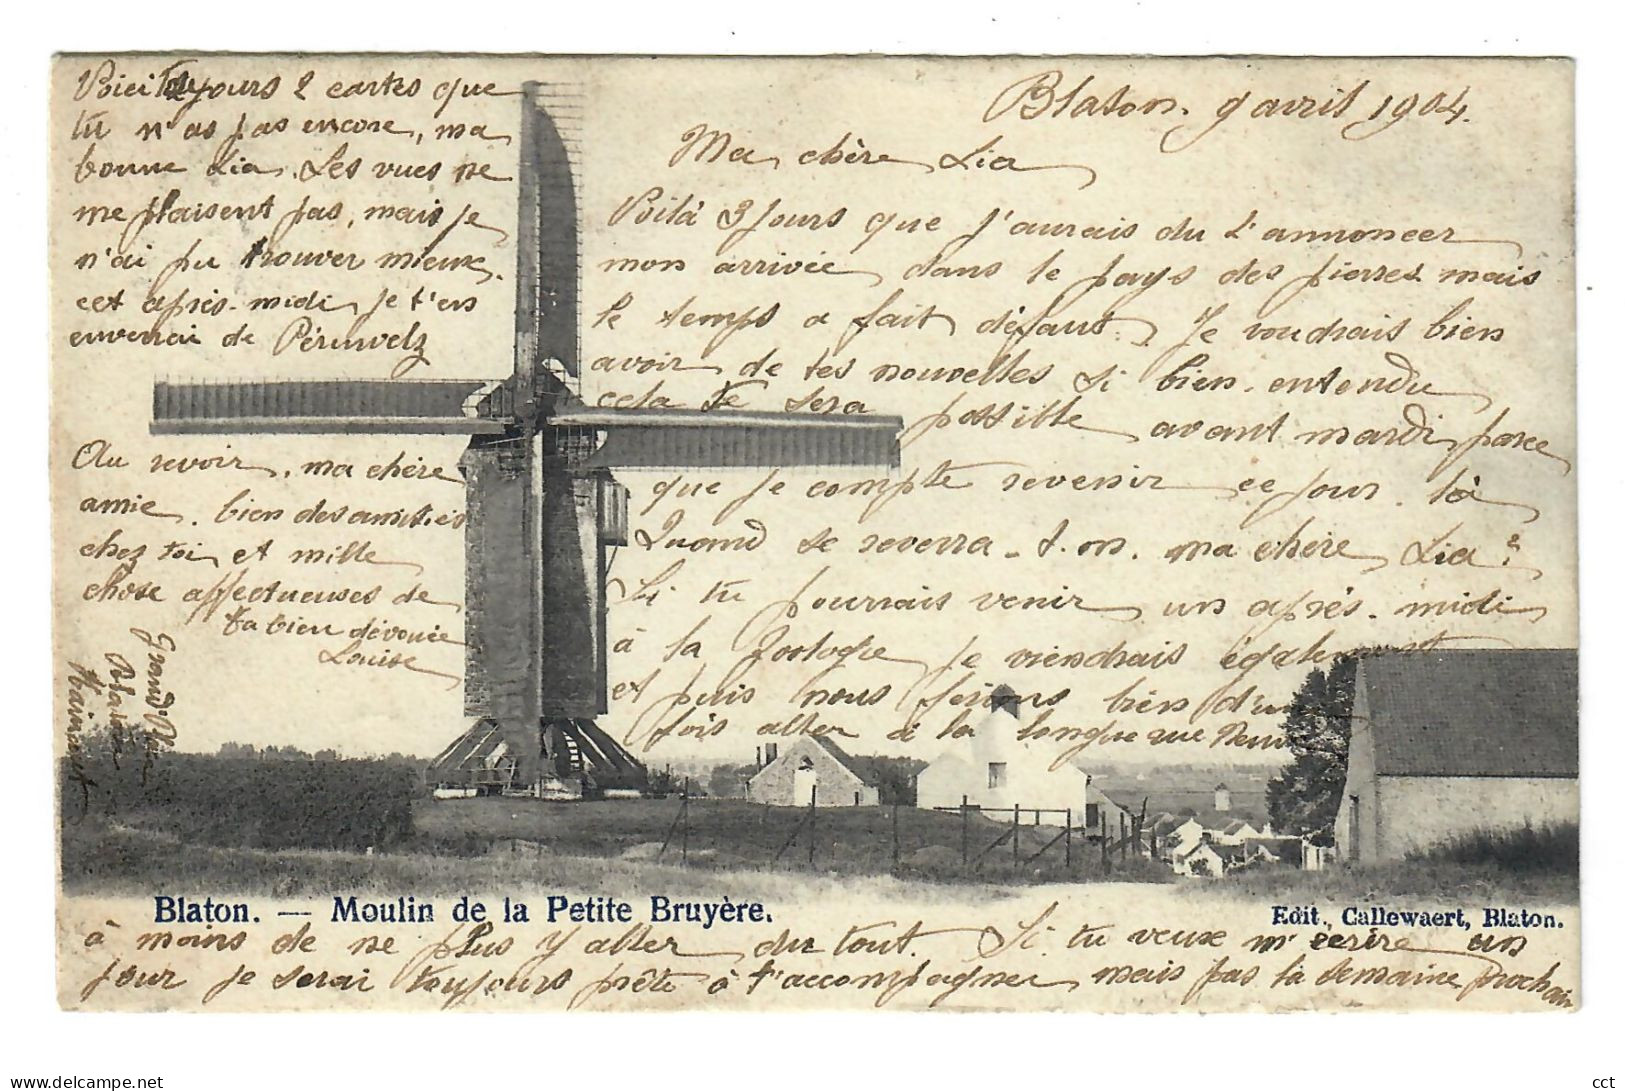 Blaton. 9 avril 1904.
Ma chère Lia
Voilà 3 jours que j'aurais du t'annoncer
mon arrivée dans le pays des pierres mais
le temps a fait défaut. Je voudrais bien
avoir de tes nouvelles si bien entendu
cela te sera possible avant mardi parce
que je compte revenir ce jour là
Quand se reverra-t.on. ma chère Lia?
Si tu pourrais venir un après-midi
à la Zoologie je viendrais également
et puis nous ferions bien d'une
fois aller à la longue rue
à moins de ne plus y aller du tout. Si tu veux m'écrire un
jour je serai toujours prête à t'accompagner mais pas la semaine prochain
Voici toujours 2 cartes que
tu n'as pas encore, ma
bonne Lia. Les vues ne
me plaisent pas, mais je
n'ai pu trouver mieux.
cet après-midi je t'en
enverrai de Péruwelz
Au revoir, ma chère
amie. bien des amitiés
chez toi et mille
chose affectueuses de
ta bien dévouée
Louise
Grand'Place
Blaton
Hainaut
Blaton. — Moulin de la Petite Bruyère.
Edit. Callewaert, Blaton.
delcampe.net
cct